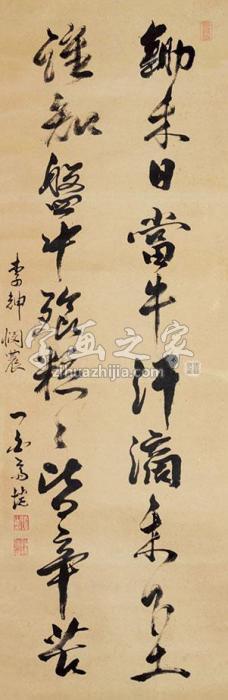 鋤禾日當午汗滴禾下土
誰知盤中飱粒〻皆辛苦
李紳憫農
字画之家
zihuazhijia.com